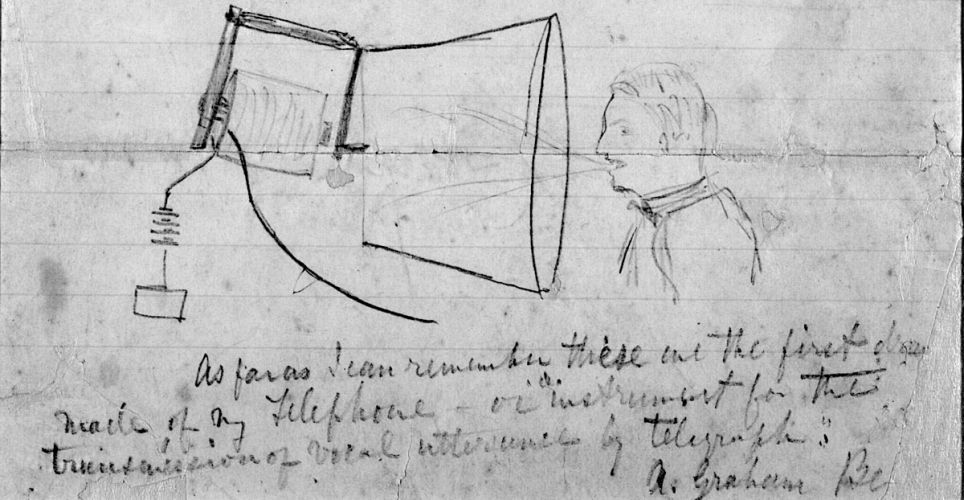 As far as I can remember these are the first
made of my Telephone - or "instrument for the
transmission of vocal utterances by telegraph."
A. Graham Be